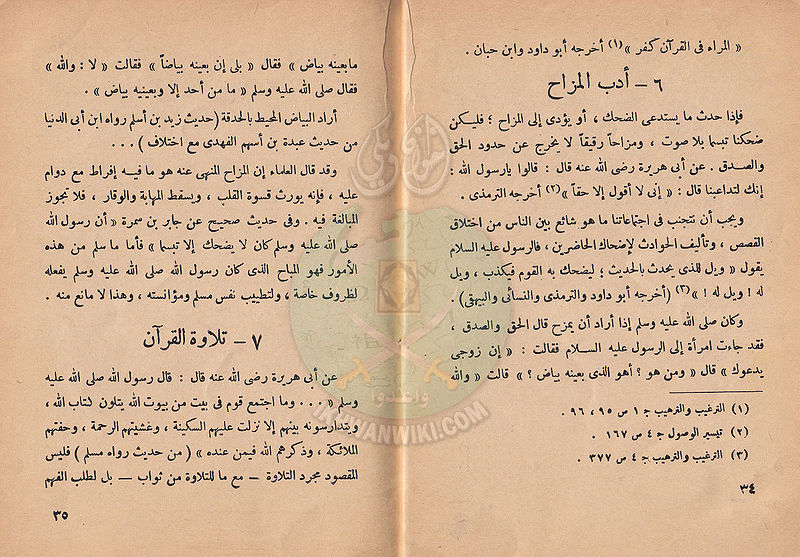 « المراء فى القرآن كفر »(١) أخرجه أبو داود وابن حبان .
٦ – أدب المزاح
فإذا حدث ما يستدعى الضحك ، أو يؤدى إلى المزاح ؛ فليكن
ضحكنا تبسما بلا صوت ، ومزاحاً رقيقاً لا يخرج عن حدود الحق
والصدق . عن أبى هريرة رضى الله عنه قال : قالوا يارسول الله :
إنك لتداعبنا قال : « إنى لا أقول إلا حقاً »(٢) أخرجه الترمذى .
ويجب أن نتجنب فى اجتماعاتنا ما هو شائع بين الناس من اختلاق
القصص ، وتأليف الحوادث لإضحاك الحاضرين ، فالرسول عليه السلام
يقول « ويل للذى يحدث بالحديث ؛ ليضحك به القوم فيكذب ، ويل
له ! ويل له ! »(٣) (أخرجه أبو داود والترمذى والنسائى والبيهقى) .
وكان صلى الله عليه وسلم إذا أراد أن يمزح قال الحق والصدق ،
فقد جاءت امرأة إلى الرسول عليه الســلام فقالت : « إن زوجى
يدعوك » قال « ومن هو ؟ أهو الذى بعينه بياض ؟ » قالت « والله
(١) الترغيب والترهيب ج ١ ص ٩٥ ، ٩٦ .
(٢) تيسير الوصول ج ٤ ص ١٦٧ .
(٣) الترغيب والترهيب ج ٤ ص ٣٧٧ .
٣٤
مابعينه بياض » فقال « بلى إن بعينه بياضاً » فقالت « لا : والله »
فقال صلى الله عليه وسلم « ما من أحد إلا وبعينيه بياض » .
أراد البياض المحيط بالحدقة (حديث زيد بن أسلم رواه ابن أبى الدنيا
من حديث عبدة بن أسهم الفهدى مع اختلاف ) ...
وقد قال العلماء إن المزاح المنهى عنه هو ما فيـه إفراط مع دوام
عليه ، فإنه يورث قسوة القلب ، ويسقط المهابة والوقار ، فلا تجوز
المبالغة فيه . وفى حديث صحيح عن جابر بن سمرة « أن رسول الله
صلى الله عليه وسلم كان لا يضحك إلا تبسما » فأما ما سلم من هذه
الأمور فهو المباح الذى كان رسول الله صلى الله عليه وسلم يفعله
لظروف خاصة ، ولتطييب نفس مسلم ومؤانسته ، وهذا لا مانع منه .
٧ – تلاوة القرآن
عن أبى هريرة رضى الله عنه قال : قال رسول الله صلى الله عليه
وسلم « ... وما اجتمع قوم فى بيت من بيوت الله يتلون كتاب الله ،
ويتدارسونه بينهم إلا نزلت عليهم السكينة ، وغشيتهم الرحمة ، وحفتهم
الملائكة ، وذكرهم الله فيمن عنده » ( من حديث رواه مسلم ) فليس
المقصود مجرد التلاوة — مع ما للتلاوة من ثواب — بل لطلب الفهم
٣٥
وأعدوا
IKHWANWIKI.COM